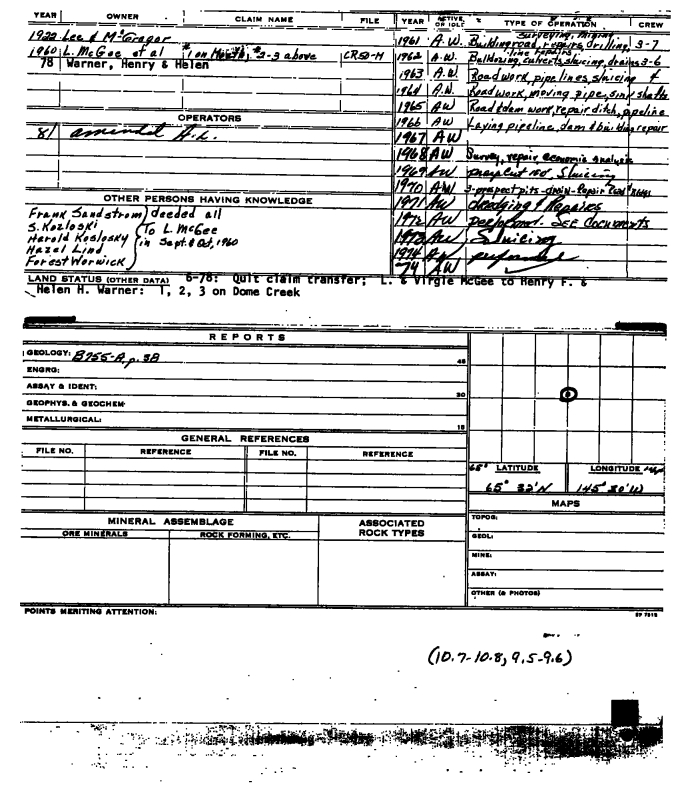 YEAR OWNER CLAIM NAME FILE
1922 Lee & McGregor
1960 L. McGee et al #1 on Mouth, #2-3 above CR50-M
78 Warner, Henry & Helen
OPERATORS
81 amended A.L.
OTHER PERSONS HAVING KNOWLEDGE
Frank Sandstrom) deeded all
S. Kozloski (To L. McGee
Harold Koslosky in Sept. & Oct, 1960
Hazel Lind
Forest Warwick
YEAR ACTIVE OR IDLE TYPE OF OPERATION CREW
Surveying, mining
1961 A.W. Building road, repairs, drilling, 3-7
line repairs,
1962 A.W. Bulldozing, culverts, sluicing, drains 3-6
1963 A.W. Road work, pipe lines, sluicing 4
1964 A.W. Road work, moving pipe, sink shafts
1965 AW Road & dam work, repair ditch, pipeline
1966 AW Laying pipeline, dam & building repair
1967 AW
1968 AW Survey, repair, economic analysis
1969 AW prospect Sluicing
1970 AW 3-prospect pits-drain-Repair
1971 AW dredging & Repairs
1972 AW Performed. SEE Documents
1973 AW Sluicing
1974 AW performed
74 AW
LAND STATUS (OTHER DATA) 6-78: Quit claim transfer; L. & Virgie McGee to Henry F. &
Helen H. Warner: 1, 2, 3 on Dome Creek
REPORTS
GEOLOGY: B755-A, p. 3B
45
ENGRG:
ASSAY & IDENT:
30
GEOPHYS. & GEOCHEM:
METALLURGICAL:
15
GENERAL REFERENCES
FILE NO. REFERENCE FILE NO. REFERENCE
65° LATITUDE LONGITUDE
65° 32'N 145° 30'W
MAPS
TOPOG:
GEOL:
MINE:
ASSAY:
OTHER (& PHOTOS)
MINERAL ASSEMBLAGE ASSOCIATED ROCK TYPES
ORE MINERALS ROCK FORMING, ETC.
POINTS MERITING ATTENTION:
(10.7-10.8, 9.5-9.6)